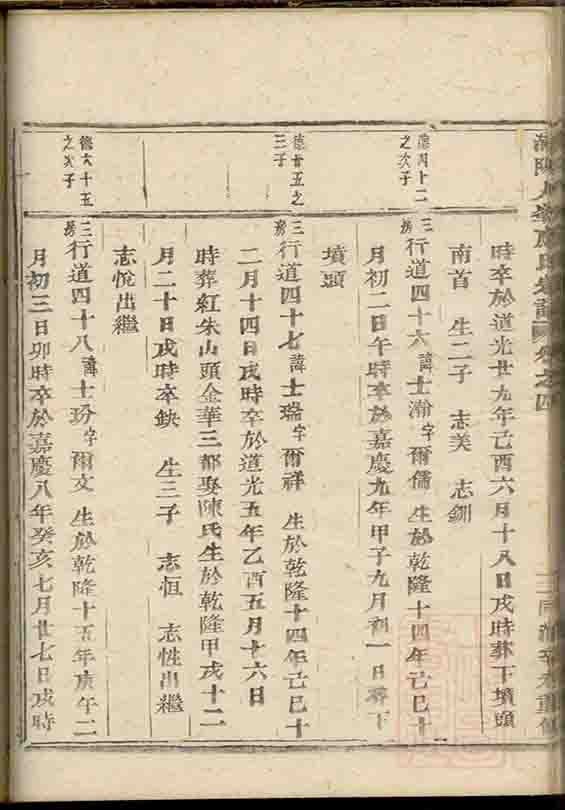 氏宗譜 卷之四
時卒於道光廿九年己酉六月十八日戌時葬下墳頭
南首 生二子 志美 志釧
德四十二之次子
三房行道四十六諱士瀚字爾儒 生於乾隆十四年己巳十
月初二日午時卒於嘉慶九年甲子九月初一日葬下
墳頭
德廿五之三子
三房行道四十七諱士璐字爾祥 生於乾隆十四年己巳十
二月十四日戌時卒於道光五年乙酉五月十六日
時葬紅朱山頭金華三都娶陳氏生於乾隆甲戌十二
月二十日戌時卒缺 生三子 志恒 志性出繼
志悅出繼
德六十五之次子
三房行道四十八諱士玢字爾文 生於乾隆十五年庚午二
月初三日卯時卒於嘉慶八年癸亥七月廿七日戌時